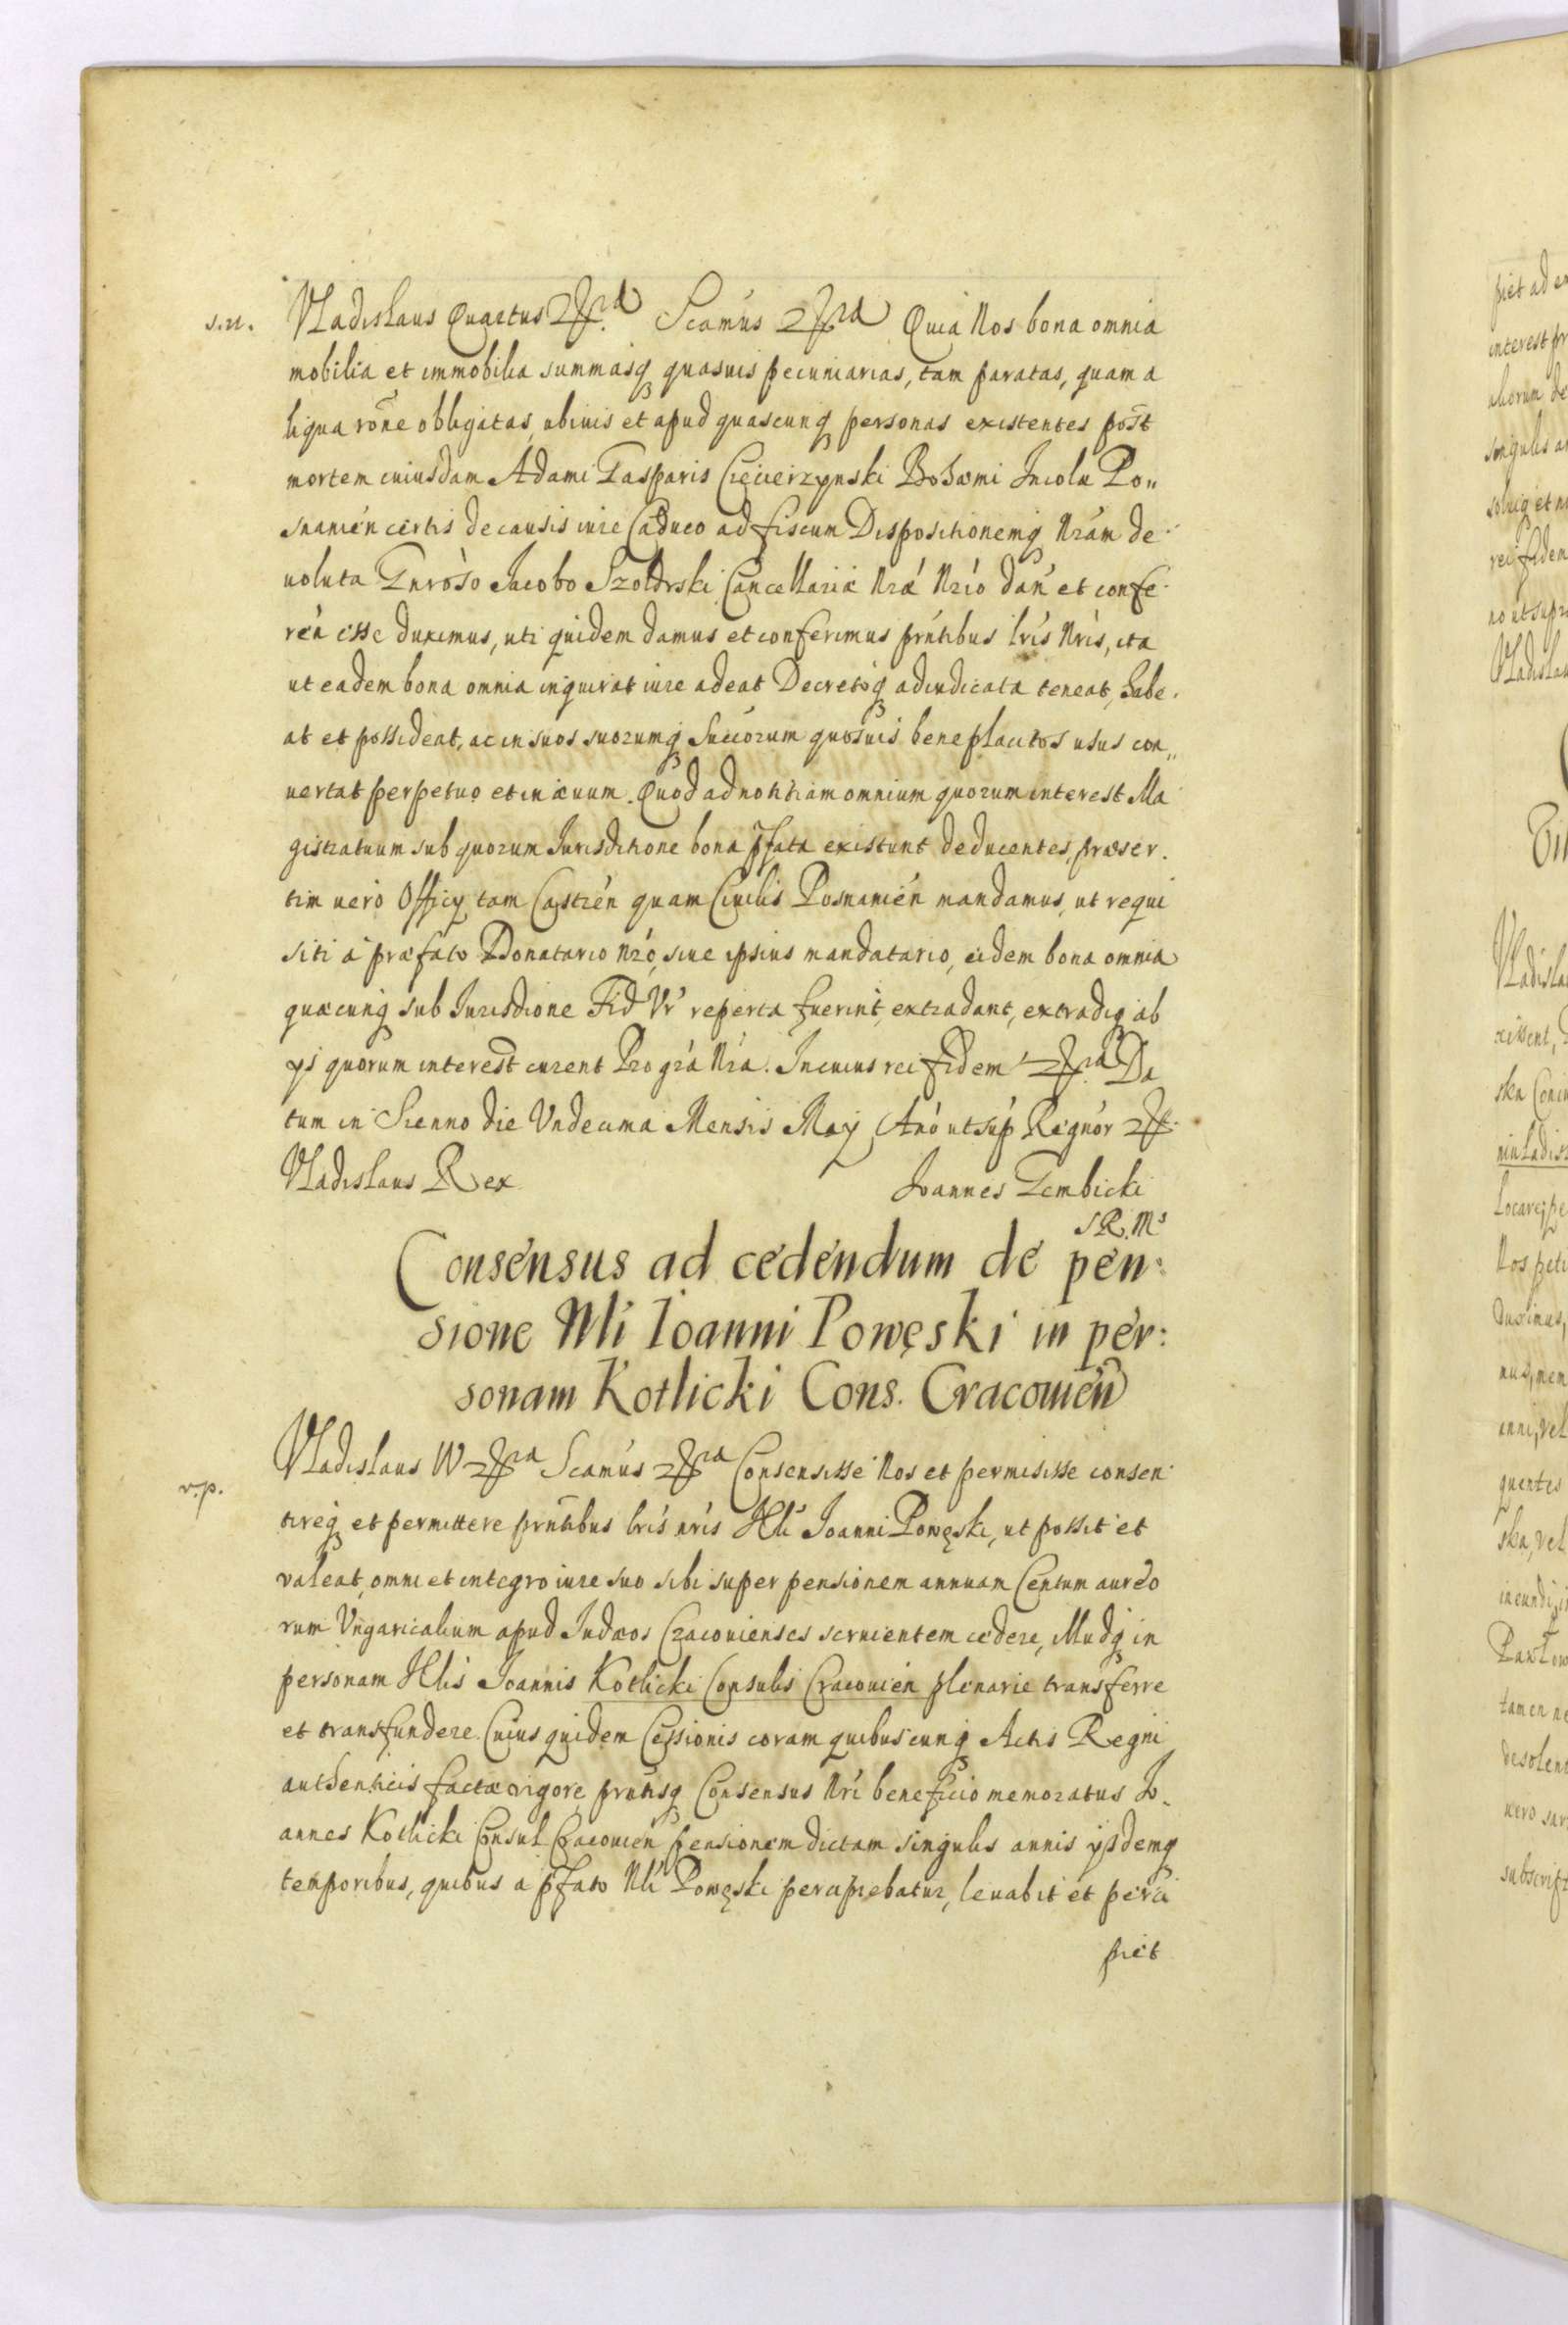 s.n. Vladislaus Quartus &c.ra Scimus &c.ra Quia Nos bona omnia
mobilia et immobilia summasq quasuis pecuniarias, tam paratas, quam a
liqua rone obligatas, ubiuis et apud quascunq personas existentes post
mortem cuiusdam Adami Gasparis Ciecierzynski Bohœmi Incolæ Po„
snanien certis de causis iure Caduco ad fiscum Dispositionemq Nram de
uoluta Gnroso Iacobo Szołdrski Cancellariæ Nræ Nrio dan et confe
ren esse duximus, uti quidem damus et conferimus prntibus lris Nris, ita
ut eadem bona omnia inquirat iure adeat Decretoq adiudicata teneat, habe
at et possideat, ac in suos suorumq Succorum quosuis beneplacitos usus con„
uertat perpetuo et in æuum. Quod ad notitiam omnium quorum interest Ma
gistratuum sub quorum Iurisditione bona pfata existunt deducentes, præser.
tim uero Officij tam Castren quam Ciuilis Posnanien mandamus, ut requi
siti a præfato Donatario Nro, siue ipsius mandatario, eidem bona omnia
quæcunq sub Iurisdione Fid Vr reperta fuerint, extradant, extradiq ab
ijs quorum interest curent Pro gra Nra. In cuius rei fidem &c.ra Da
tum in Sienno die Vndecima Mensis Maij Ano ut sup Regnor &c.
Vladislaus Rex Ioannes Gembicki
S R. Ms
Consensus ad cedendum de pen:
sione Nli Ioanni Powęski in per:
sonam Kotlicki Cons. Cracouien
v.p. Vladislaus IV &c.ra Scimus &c.ra Consensisse Nos et permisisse consen
tireq et permittere prntibus lris nris Nli Ioanni Powęski, ut possit et
valeat, omni et integro iure suo sibi super pensionem annuam Centum aureo
rum Vngaricalium apud Iudæos Cracouienses seruientem cedere, illudq in
personam Nlis Ioannis Kotlicki Consulis Cracouien plenarie transferre
et transfundere. Cuius quidem Cessionis coram quibuscunq Actis Regni
authenticis factæ vigore, prntisq Consensus Nri beneficio memoratus Io„
annes Kotlicki Consul Cracouien pensionem dictam singulis annis ijsdemq
temporibus, quibus a pfato Nli Powęski percipiebatur, leuabit et perci
piet